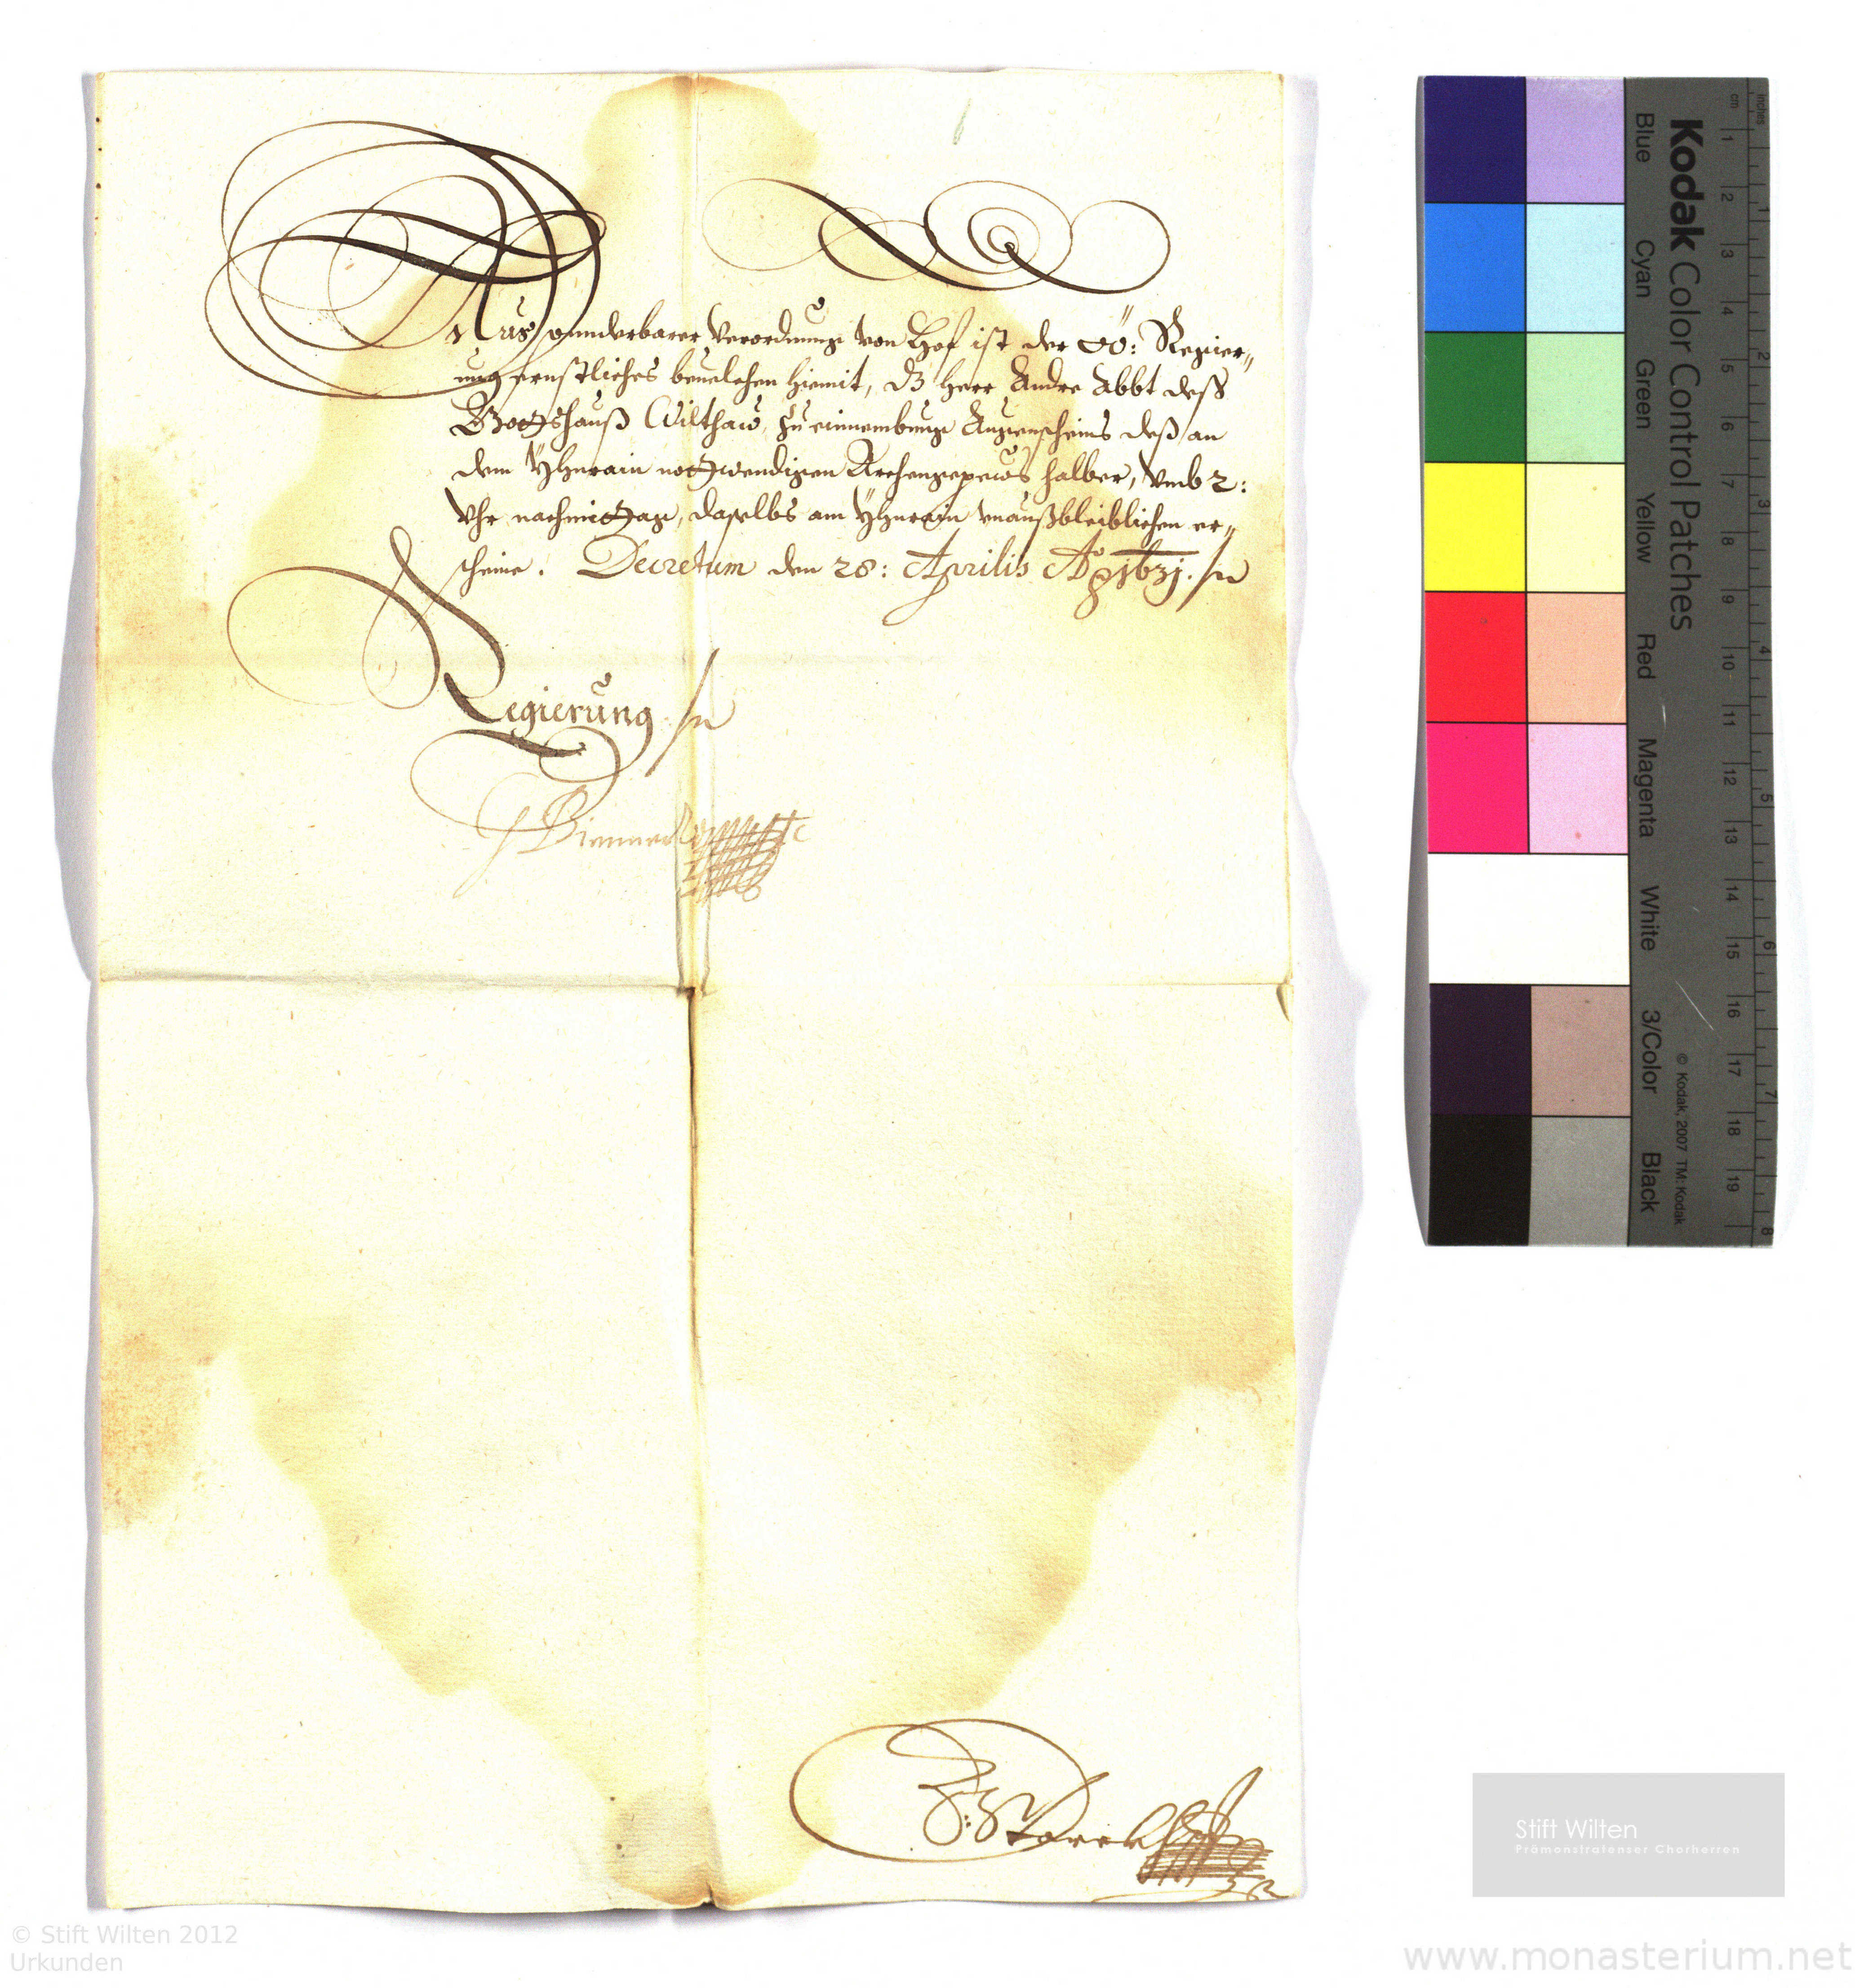 Aus sonnderbarer Verordnung von Hof ist der OÖ: Regier„
ung ernstliches beuelchen hiemit, dz herr Andre Abbt deß
Gottshauß Wilthaw, zu einnembung Augenscheins deß an
dem Yhnrain nottwendigen Archengepews halber, vmb 2:
Vhr nachmittag, daselbs am Yhnrain vnaußbleiblichen er„
scheine. Decretum den 28: Aprilis Aõ 1631.
Regierung
Kodak Color Control Patches
Blue Cyan Green Yellow Red Magenta White 3/Color Black
© Kodak, 2007 TM: Kodak
inches 1 2 3 4 5 6 7 8
cm 1 2 3 4 5 6 7 8 9 10 11 12 13 14 15 16 17 18 19
Stift Wilten
Prämonstratenser Chorherren
© Stift Wilten 2012
Urkunden
www.monasterium.net